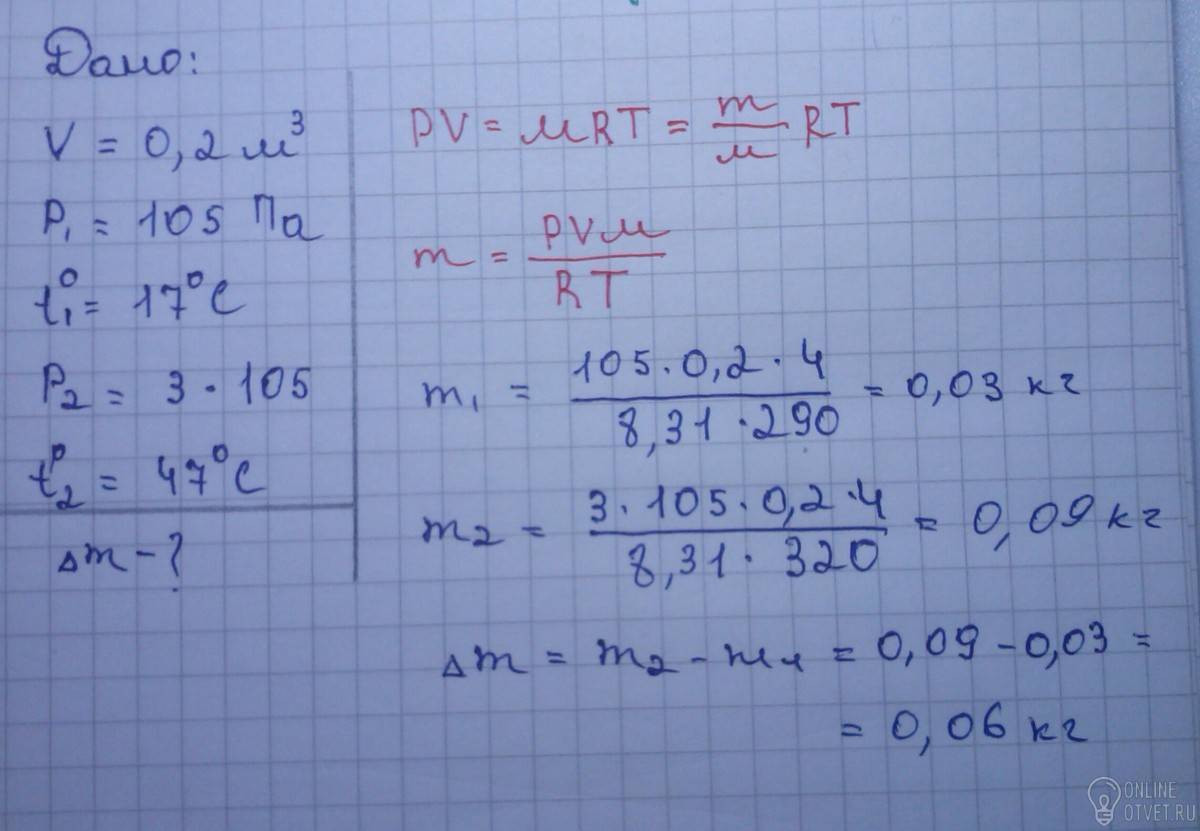 Дано:
V = 0,2 м³
P₁ = 105 Па
t₁⁰ = 17⁰C
P₂ = 3 · 105
t₂⁰ = 47⁰C
Δm - ?
PV = μRT = m/μ RT
m = PVμ / RT
m₁ = 105·0,2·4 / 8,31·290 = 0,03 кг
m₂ = 3·105·0,2·4 / 8,31·320 = 0,09 кг
Δm = m₂ - m₁ = 0,09 - 0,03 =
= 0,06 кг
ONLINE
OTVET.RU